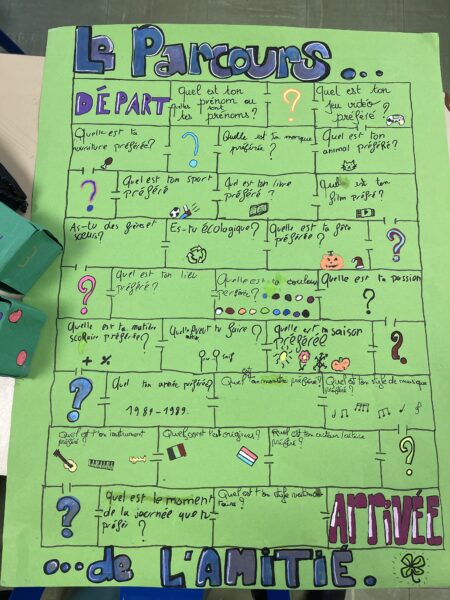 Le Parcours...
DÉPART
Quel est ton
prénom ou
sont
tes prénoms?
?
quel est ton
jeu vidéo
préféré?
Quelle est ta
nourriture préférée?
?
Quelle est ta marque
préférée?
Quel est ton
animal préféré?
?
Quel est ton sport
préféré
Quel est ton livre
préféré?
Quel est ton
film préféré?
As-tu des frères et
sœurs?
Es-tu écologique?
Quelle est ta fête
préférée?
?
?
Quel est ton lieu
préféré?
Quelle est ta couleur
Quelle est ta passion
?
Quelle est ta matière
scolaire préférée?
+ %
ta saison
préférée?
?
?
Quel ton année préférée?
1981-1989.
préféré?
Quel est ton style de musique
préféré?
Quel est ton instrument
préféré?
?
?
Quel est le moment
de la journée que tu
préfèr?
Quel est ton style
ARRIVÉE
...de L'AMITIÉ.